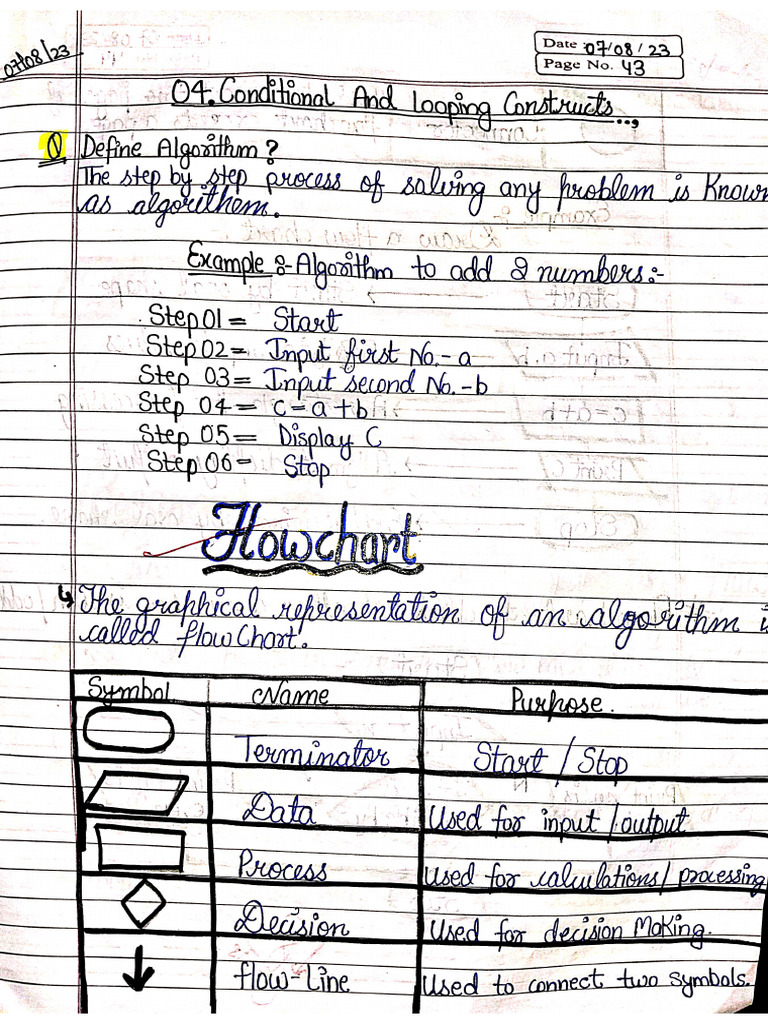 07/08/23
Date 07/08/23
Page No. 43
04. Conditional And Looping Constructs...,
Q Define Algorithm?
The step by step process of salving any problem is Known
as algorithem.
Example :- Algorithm to add 2 numbers:-
Step 01 = Start
Step 02 = Input first No.- a
Step 03 = Input second No. - b
Step 04 = c = a + b
Step 05 = Display C
Step 06 - Stop
Flowchart
↳ The graphical representation of an algorithm is
called flowChart.
Symbol Name Purpose.
Terminator Start / Stop
Data Used for input / output
Process Used for calculations/ processing
Decision Used for decision Making.
flow-Line Used to connect two symbols.